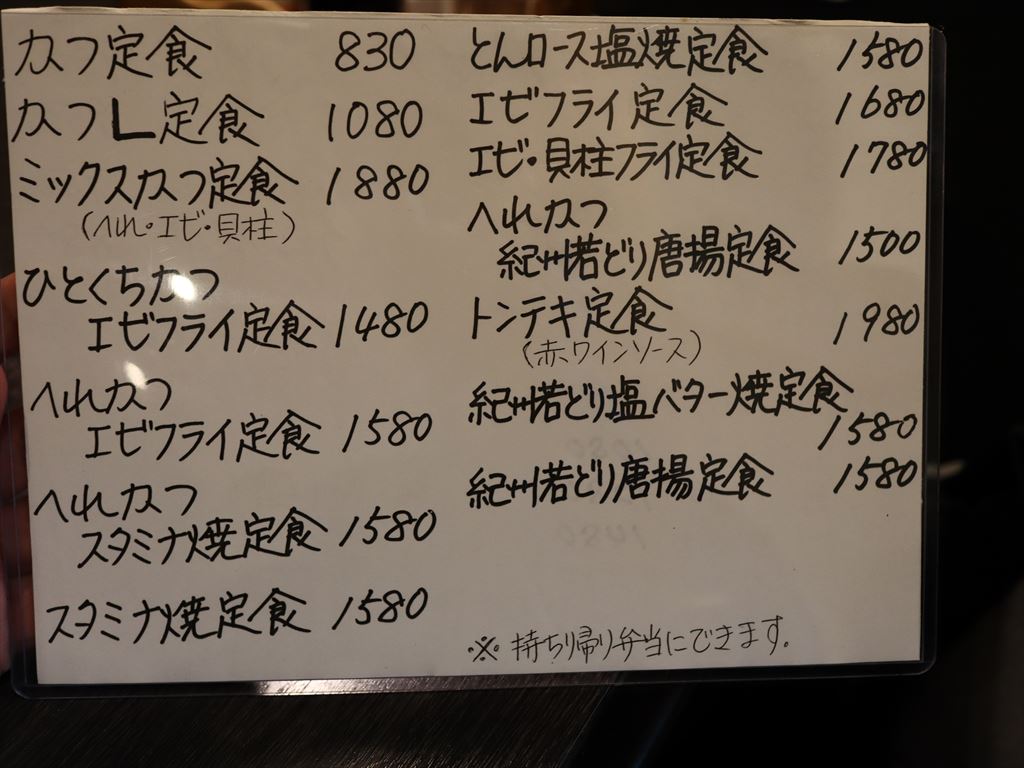 カつ定食 830
カつL定食 1080
ミックスカつ定食 1880
(へれ・エビ・貝柱)
ひとくちカつ
エビフライ定食 1480
へれカつ
エビフライ定食 1580
へれカつ
スタミナ焼定食 1580
スタミナ焼定食 1580
とんロース塩焼定食 1580
エビフライ定食 1680
エビ・貝柱フライ定食 1780
へれカつ
紀州若どり唐揚定食 1500
トンテキ定食 1980
(赤ワインソース)
紀州若どり塩バター焼定食
1580
紀州若どり唐揚定食 1580
※ 持ち帰り弁当にできます。